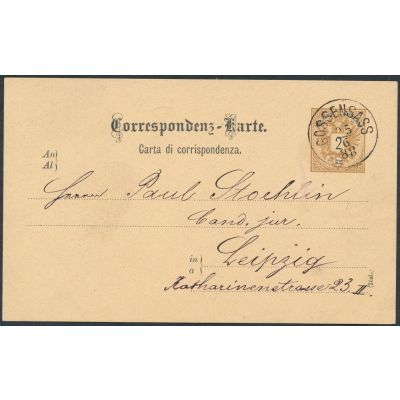 Correspondenz-Karte.
Carta di corrispondenza.
GOSSENSASS
26
88
An
Al
Herrn Paul Stochlin
Cand. jur.
in
a
Leipzig
Katharinenstrasse 23. II.
(Ital.)